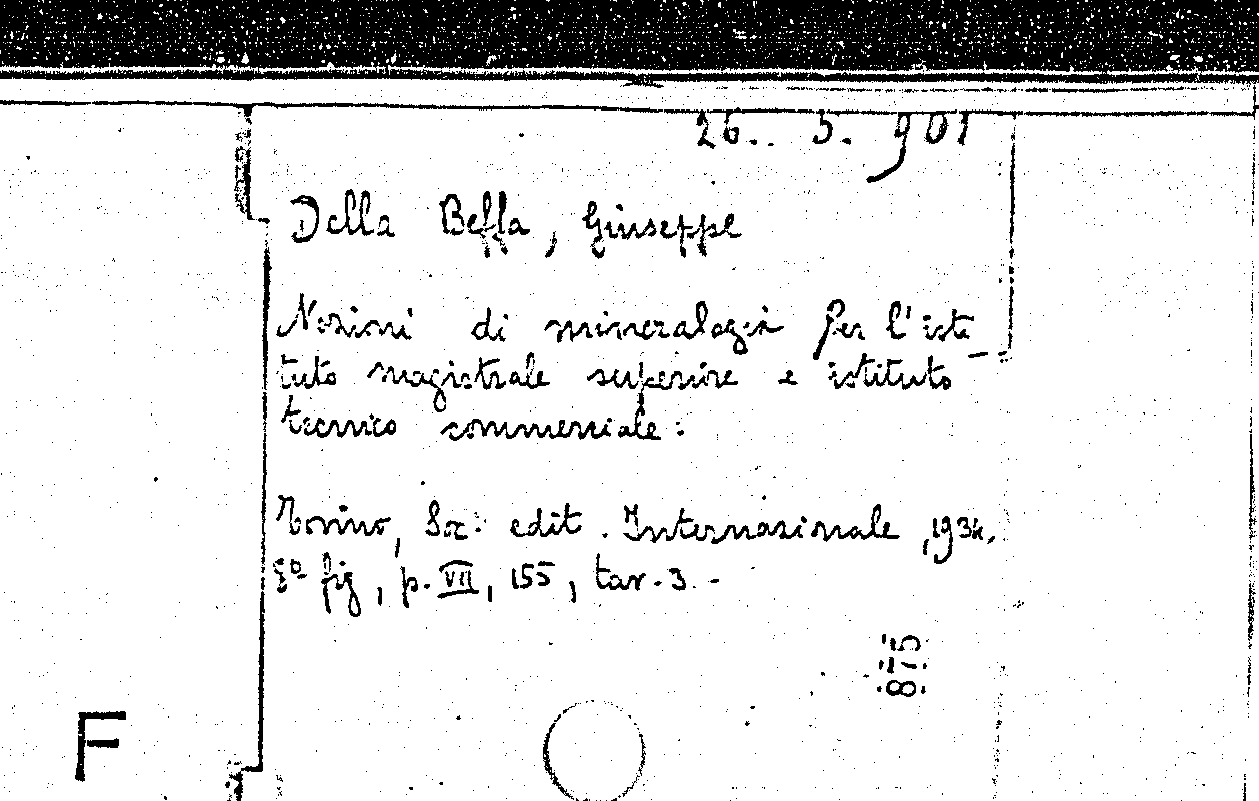 26.. 5. 901
Della Beffa, Giuseppe
Nozioni di mineralogia per l'isti
tuto magistrale superiore e istituto
tecnico commerciale:
Torino, Soc. edit. Internazionale, 1934.
8º fig, p. VII, 155, tav. 3. -
875
F